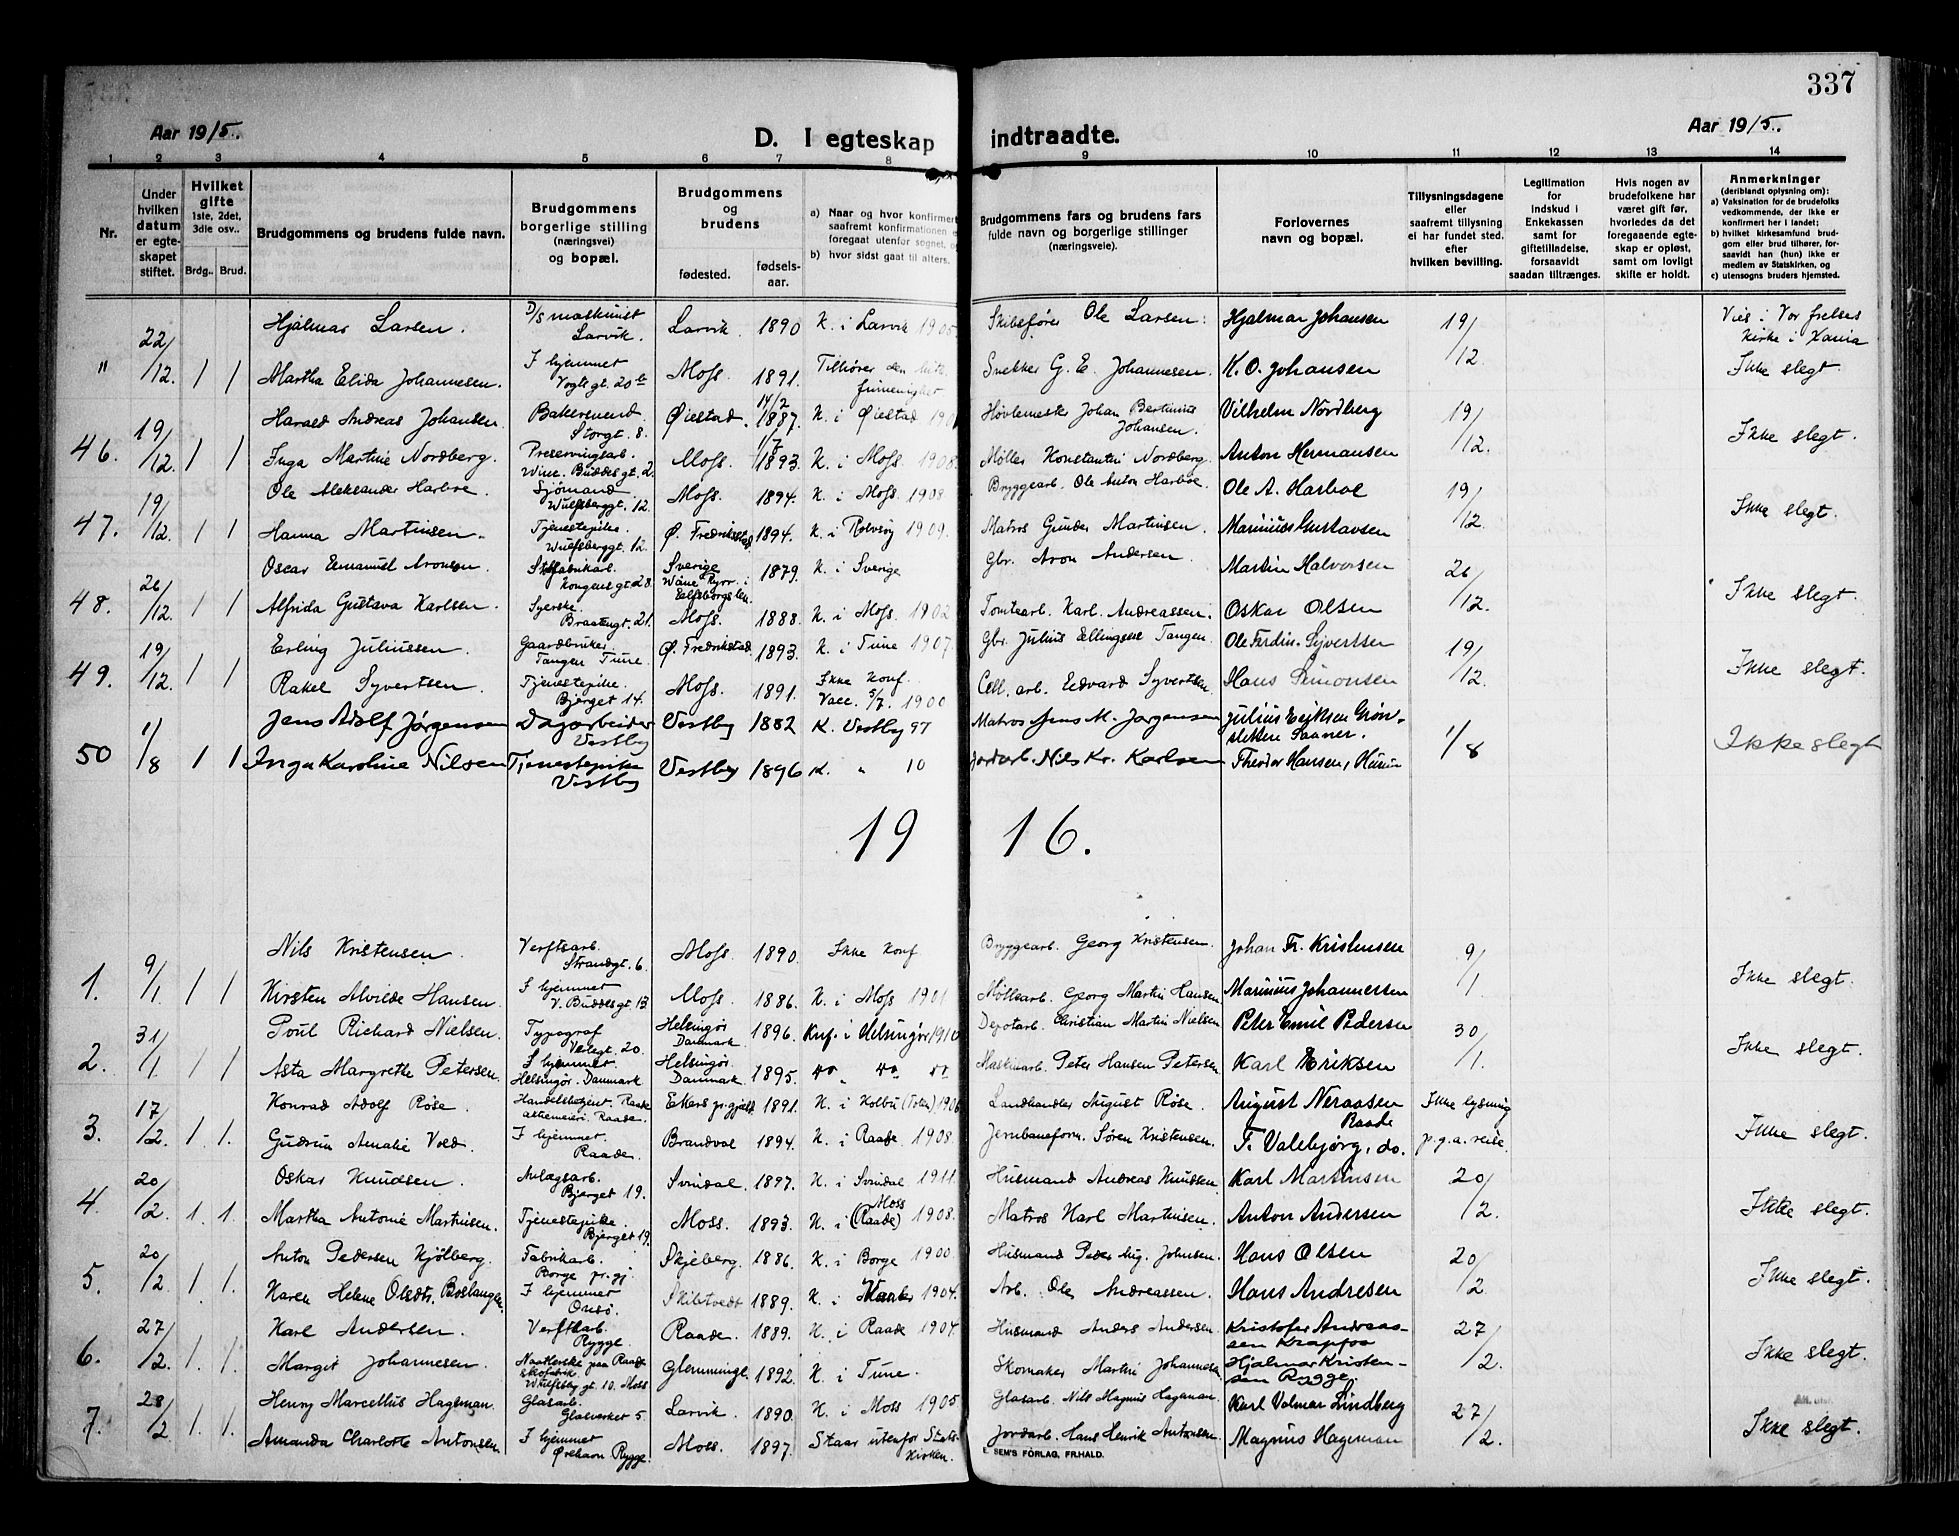 337
Aar 1915.
D. I egteskap indtraadte.
Aar 1915.
1 2 3 4 5 6 7 8 9 10 11 12 13 14
Nr.
Under hvilken datum er egteskapet stiftet.
Hvilket gifte 1ste, 2det, 3die osv..
Brdg.. Brud.
Brudgommens og brudens fulde navn.
Brudgommens borgerlige stilling (næringsvei) og bopæl.
Brudgommens og brudens
fødested. fødsels-aar.
a) Naar og hvor konfirmert saafremt konfirmationen er foregaat utenfor sognet, og
b) hvor sidst gaat til alters.
Brudgommens fars og brudens fars fulde navn og borgerlige stillinger (næringsveie).
Forlovernes navn og bopæl.
Tillysningsdagene eller saafremt tillysning ei har fundet sted, efter hvilken bevilling.
Legitimation for indskud i Enkekassen samt for giftetilladelse, forsaavidt saadan tiltrænges.
Hvis nogen av brudefolkene har været gift før, hvorledes da det foregaaende egteskap er opløst, samt om lovligt skifte er holdt.
Anmerkninger (deriblandt oplysning om): a) Vaksination for de brudefolks vedkommende, der ikke er konfirmert her i landet; b) hvilket kirkesamfund brudgom eller brud tilhører, forsaavidt han (hun) ikke er medlem av Statskirken, og c) utensogns bruders hjemsted.
Hjalmar Larsen. D/s maskinist Larvik. Larvik. 1890 K. i Larvik 1905 Skibsfører Ole Larsen. Hjalmar Johansen 19/12. Viet i Vor frelses kirke i Kania
" 22/12. 1 1 Martha Elida Johannesen. I hjemmet Vogts gt. 20 Moss. 1891. Tilhører den frimenighet Snekker G. E. Johannesen. K. O. Johansen Ikke slegt.
46. 19/12. 1 1 Harald Andreas Johansen Bakersvend. Storgt. 8. Øiestad. 14/2 1887. K. i Øiestad Høvlemester Johan Bertinius Johansen. Vilhelm Nordberg 19/12. Ikke slegt.
Inga Martine Nordberg. Preservingsarb. Wine. Buddes gt. 2. Moss 1893. K. i Moss. 1908. Møller Konstantin Nordberg. Anton Hermansen
47. 19/12. 1 1 Ole Aleksander Harboe. Sjømand Wulfsberggt. 12. Moss. 1894. K. i Moss. 1908 Bryggearb. Ole Anton Harboe Ole A. Harboe 19/12. Ikke slegt.
Hanna Martinsen. Tjenestepike. Wulfsberggt. 12. Ø. Fredrikstad 1894. K. i Rolvsøy 1909. Matros Gunder Martinsen. Marinius Gustavsen
48. 26/12. 1 1 Oscar Emanuel Aronson. fabrikarb. Kongens gt. 28. Sverige 1879. K. i Sverige Gbr. Aron Andersen Martin Halvorsen 26/12. Ikke slegt.
Alfrida Gustava Karlsen. Syerske. Braatengt. 21. Moss. 1888. K. i Moss. 1902 Tomtearb. Karl Andreassen. Oskar Olsen
49. 19/12. 1 1 Erling Juliussen. Gaardbruker. Tangen Tune. Ø. Fredrikstad 1893. K. i Tune 1907. Gbr. Julius Ellingsen Tangen Ole Ferdin. Syvertsen 19/12. Ikke slegt.
Rakel Syvertsen. Tjenestepike. Bjerget 14. Moss. 1891. Ikke konf. Vacc. 5/7. 1900 Cell. arb. Edvard Syvertsen. Hans Simonsen
50 1/8 1 1 Jens Adolf Jørgensen Dagarbeider Vestby Vestby 1882 K. Vestby 97 Matros Jens M. Jørgensen Julius Eriksen Grønsletten Saaner. 1/8 Ikke slegt
Inga Karoline Nilsen Tjenestepike Vestby Vestby 1896 K. " 10 Jordarb. Nils Kr. Karlsen Theodor Hansen,
19 16.
1. 9/1 1 1 Nils Kristensen. Verftsarb. Strandgt. 6. Moss. 1890. Ikke konf Bryggearb. Georg Kristensen. Johan Fr. Kristensen 9/1 Ikke slegt.
Kirsten Alvilde Hansen. I hjemmet V. Buddes gt. 13. Moss 1886. K. i Moss 1901 Mølloarb. Georg Martin Hansen Marinius Johannessen
2. 31/1. 1 1 Poul Richard Nielsen. Typograf 20. Helsingør Danmark 1896. Knf. i Helsingør 1910 Depotarb. Christian Martin Nielsen Peter Emil Pedersen 30/1. Ikke slegt.
Asta Margrethe Petersen. I hjemmet. Helsingør. Danmark Helsingør. Danmark. 1895. do do do Maskinarb. Peter Hansen Petersen Karl Eriksen
3. 17/2. 1 1. Konrad Adolf Røse. Handelsbetjent. Raade Ekers pr.gjeld 1891. K. i Kolbu (Toten) 1906 Landhandler August Røse. August Neraasen Raade Ikke lysning p.g.a. reise Ikke slegt.
Gudrun Amalie Vold. I hjemmet. Raade. Brandval 1894. K. i Raade. 1908. Jernbaneform. Søren Kristensen. T. Valebjørg, do.
4. 20/2. 1. 1. Oskar Knudsen. Anlægsarb. Bjerget 19. Svindal. 1897. K. i Svindal 1911. Husmand Andreas Knudsen. Karl Martinsen 20/2. Ikke slegt.
Martha Antonie Martinsen. Tjenestepike. Bjerget 19. Moss. 1893. K. i Moss (Raade) 1908. Matros Karl Martinsen. Anton Andersen
5. 20/2 1. 1. Anton Pedersen Kjølberg. Fabrikarb. Borge pr.gj. Skjeberg. 1886. K. i Borge 1900. Husmand Peder Aug. Johnsen. Hans Olsen 20/2. Ikke slegt.
Karen Helene Olsdtr. Boslangen. I hjemmet Onsø. Skibtvedt 1889. K. i 1904. Arb. Ole Andreassen. Hans Andresen
6. 27/2. 1. 1. Karl Andersen. Verftsarb. Rygge. Raade. 1889. K. i Raade 1904. Husmand Anders Andersen. Kristofer Andreassen Krapfos 27/2. Ikke slegt.
Margit Johannesen. Naatlerske paa Raade skofabrik Wulfsby gt. 10. Moss Glemminge 1892. K. i Tune. Skomaker Martin Johannesen Hjalmar Kristensen Rygge.
7. 28/2 1. 1. Henry Marcellus Hageman. Glasarb. Glasverket 5. Larvik. 1890. K. i Moss 1905 Glasarb. Nils Magnus Hageman. Karl Valmar Lindberg 27/2. Ikke slegt.
Amanda Charlotte Antonsen. I hjemmet Ørehavn Rygge. Moss. 1897. Staar utenfor Stats-Kirken. Jordarb. Hans Henrik Antonsen Magnus Hageman
SEM'S FORLAG, FR.HALD.